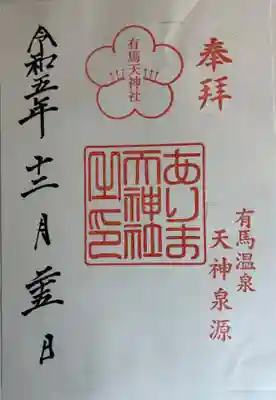 奉拝
有馬温泉
天神泉源
有馬天神社
ありま
天神社
之印
令和五年十二月廿五日